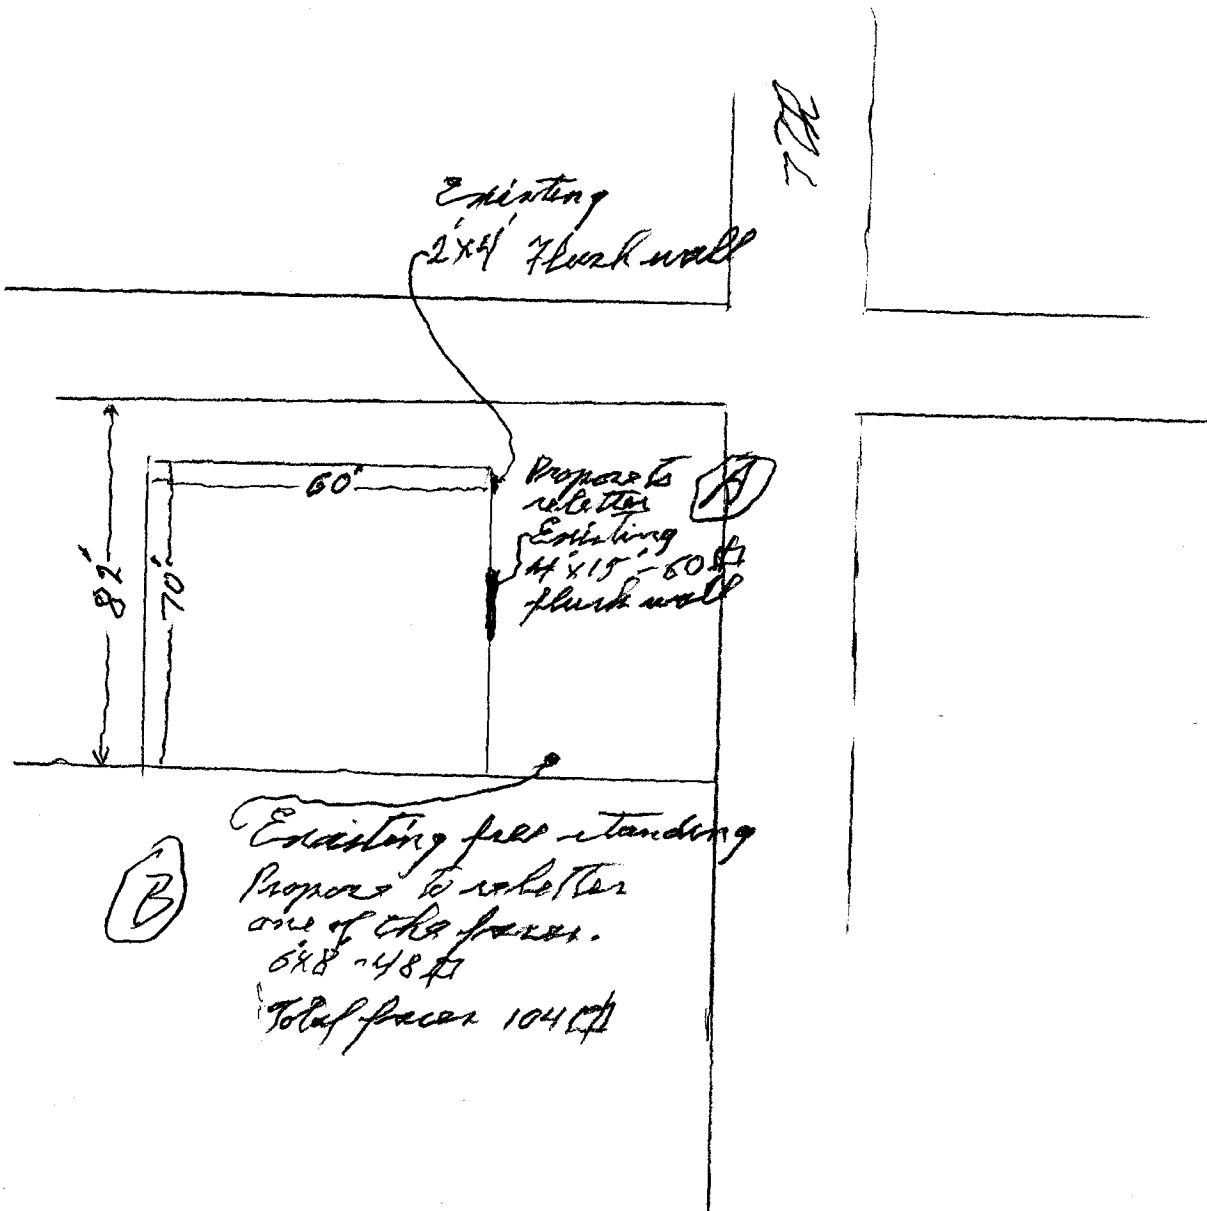 Existing
2'x4' Flush wall
60'
Propose to
reletter
A
Existing
4'x15'-60
flush wall
82'
70'
Existing free standing
B
Propose to reletter
one of the faces.
6'x8'-48
Total faces 104